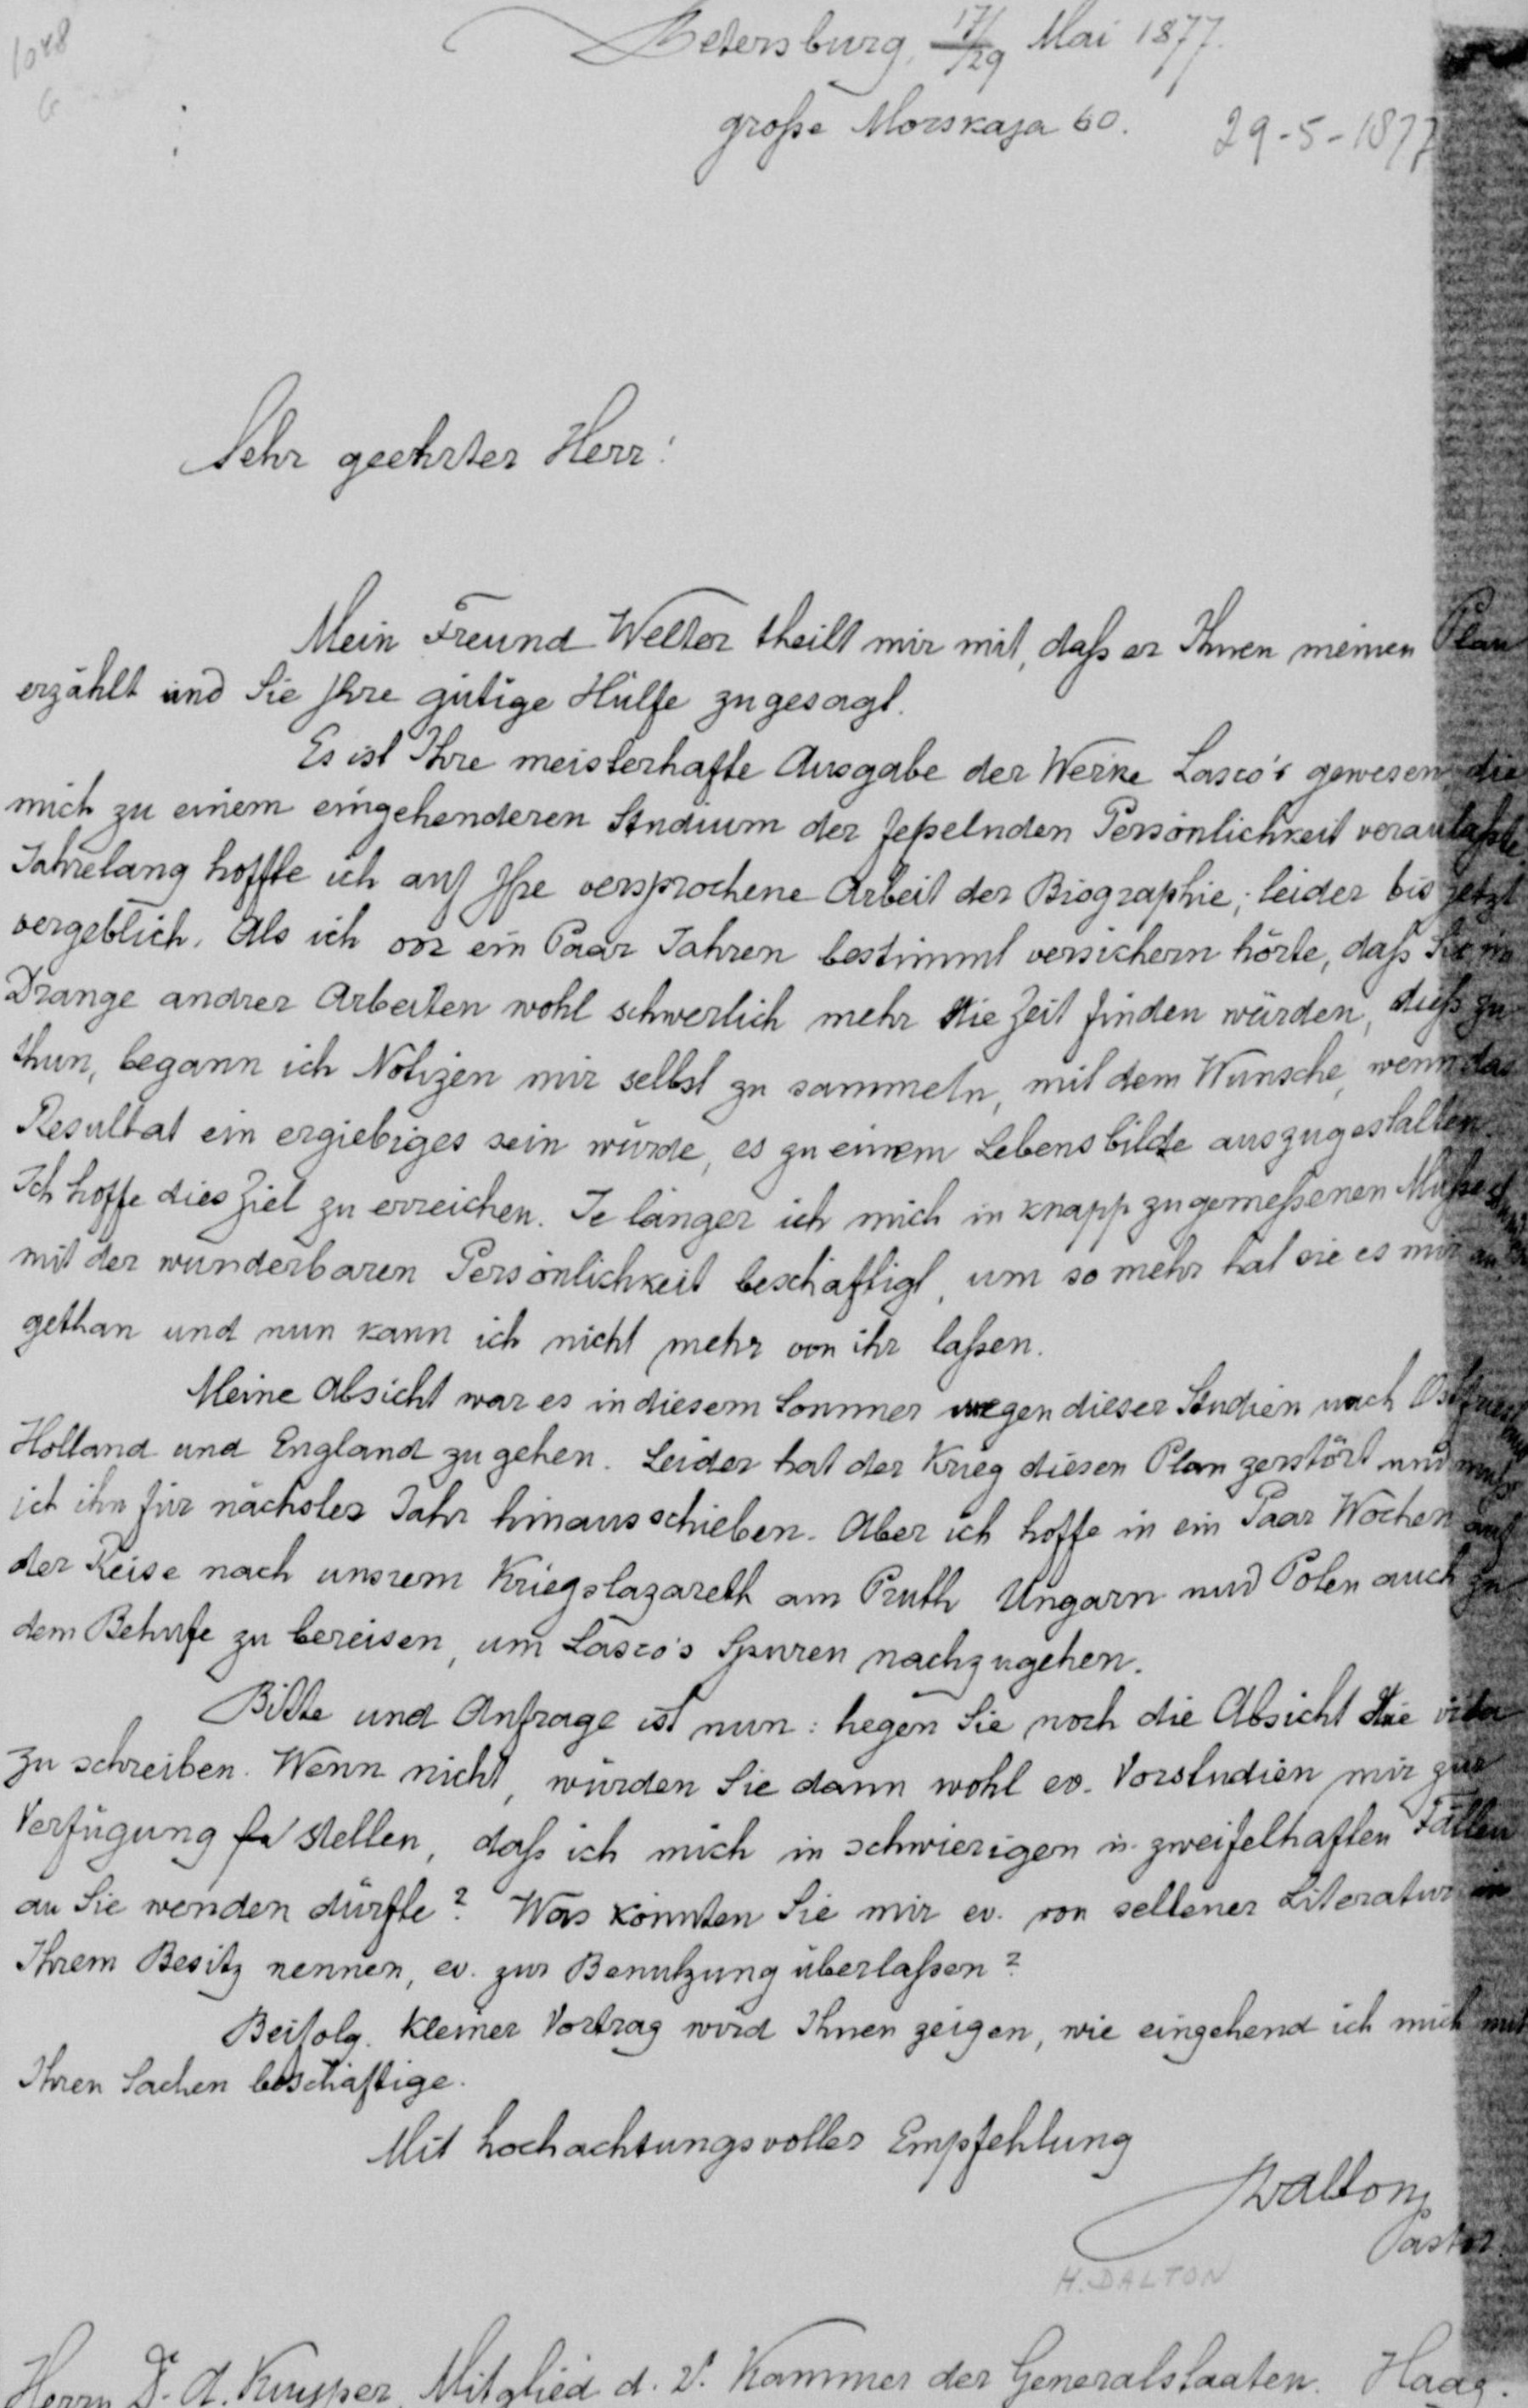 1048
G
Petersburg, 17/29 Mai 1877.
große Morskaja 60.
29-5-1877
Sehr geehrter Herr!
Mein Freund Welter theilt mir mit, daß er Ihnen meinen Plan
erzählt und Sie Ihre gütige Hülfe zugesagt.
Es ist Ihre meisterhafte Ausgabe der Werke Lasco's gewesen, die
mich zu einem eingehenderen Studium der feßelnden Persönlichkeit veranlaßte.
Jahrelang hoffte ich auf Ihre versprochene Arbeit der Biographie; leider bis jetzt
vergeblich. Als ich vor ein Paar Jahren bestimmt versichern hörte, daß Sie im
Drange andrer Arbeiten wohl schwerlich mehr die Zeit finden würden, dieß zu
thun, begann ich Notizen mir selbst zu sammeln, mit dem Wunsche, wenn das
Resultat ein ergiebiges sein würde, es zu einem Lebensbilde auszugestalten.
Ich hoffe dies Ziel zu erreichen. Je länger ich mich in knapp zugemeßenen
mit der wunderbaren Persönlichkeit beschäftigt, um so mehr hat sie es mir an
gethan und nun kann ich nicht mehr von ihr laßen.
Meine Absicht war es in diesem Sommer wegen dieser Studien nach
Holland und England zu gehen. Leider hat der Krieg diesen Plan zerstört und muß
ich ihn für nächstes Jahr hinausschieben. Aber ich hoffe in ein Paar Wochen auf
der Reise nach unsrem Kriegslazareth am Pruth Ungarn und Polen auch zu
dem Behufe zu bereisen, um Lasco's Spuren nachzugehen.
Bitte und Anfrage ist nun: hegen Sie noch die Absicht die vita
zu schreiben. Wenn nicht, würden Sie dann wohl ev. Vorstudien mir zur
Verfügung stellen, daß ich mich in schwierigen u. zweifelhaften Fällen
an Sie wenden dürfte? Was könnten Sie mir ev. von seltener Literatur in
Ihrem Besitz nennen, ev. zur Benutzung überlaßen?
Beifolg. kleiner Vortrag wird Ihnen zeigen, wie eingehend ich mich mit
Ihren Sachen beschäftige.
Mit hochachtungsvoller Empfehlung
HDalton,
Pastor.
H. DALTON
Herrn Dr. A. Kuyper, Mitglied d. V. Kammer der Generalstaaten. Haag.